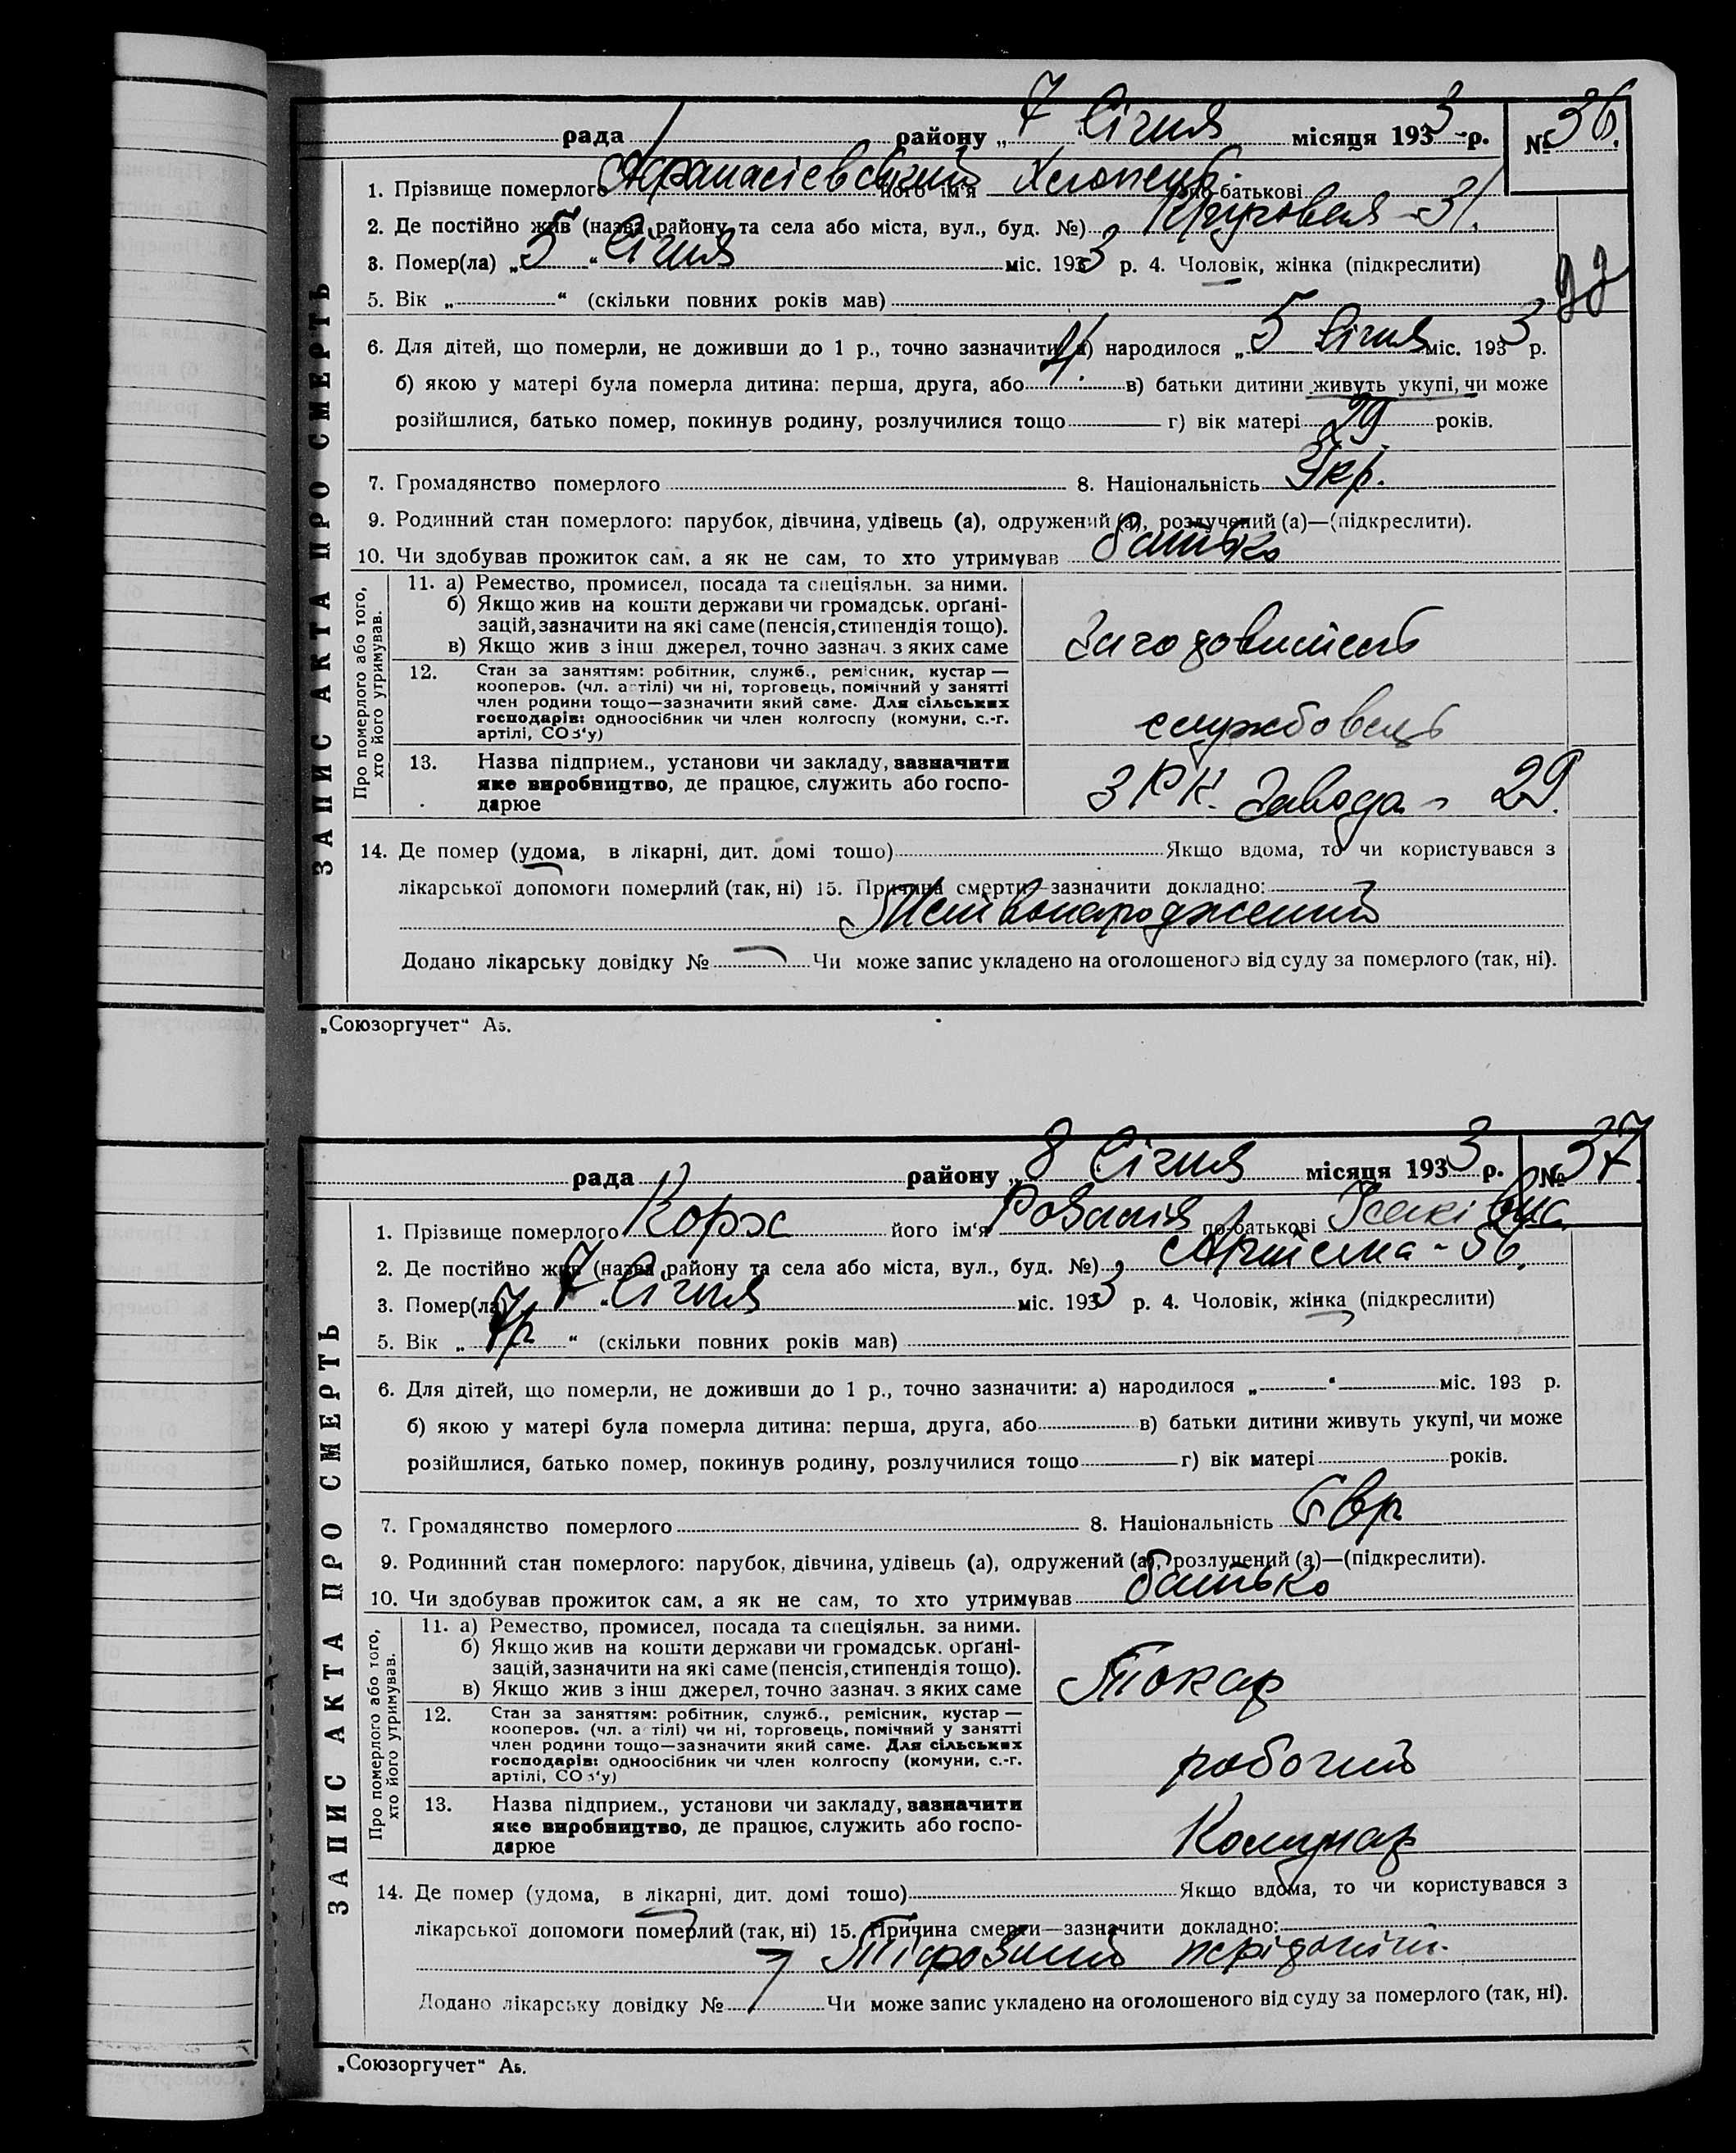 рада районy „ 7 Січня місяця 1933 р. № 36.
ЗАПИС АКТА ПРО СМЕРТЬ
1. Прізвище померлого Афанасієвський його ім'я Хлопець. по-батькові
2. Де постійно жив (назва району та села або міста, вул., буд. №) Кругова - 31.
3. Помер(ла) „ 5 “ Січня міс. 1933 р. 4. Чоловік, жінка (підкреслити)
5. Вік „ “ (скільки повних років мав)
6. Для дітей, що померли, не доживши до 1 р., точно зазначити: а) народилося „ 5 Січня міс. 1933 р.
б) якою у матері була померла дитина: перша, друга, або 4. в) батьки дитини живуть укупі, чи може
розійшлися, батько помер, покинув родину, розлучилися тощо г) вік матері 29 років.
7. Громадянство померлого 8. Національність Укр.
9. Родинний стан померлого: парубок, дівчина, удівець (а), одружений (а), розлучений (а)—(підкреслити).
10. Чи здобував прожиток сам, а як не сам, то хто утримував батько
Про померлого або того, хто його утримував.
11. а) Ремество, промисел, посада та спеціяльн. за ними.
б) Якщо жив на кошти держави чи громадськ. орґані-
зацій, зазначити на які саме (пенсія, стипендія тощо).
в) Якщо жив з інш джерел, точно зазнач. з яких саме
Заготовитель
12. Стан за заняттям: робітник, служб., ремісник, кустар —
кооперов. (чл. артілі) чи ні, торговець, помічний у занятті
член родини тощо—зазначити який саме. Для сільських
господарів: одноосібник чи член колгоспу (комуни, с.-г.
артілі, СОЗ'у)
службовець
13. Назва підприєм., установи чи закладу, зазначити
яке виробництво, де працює, служить або госпо-
дарює
ЗРК. Завода - 29.
14. Де помер (удома, в лікарні, дит. домі тощо) Якщо вдома, то чи користувався з
лікарської допомоги померлий (так, ні) 15. Причина смерти—зазначити докладно:
Мертвонароджений
Додано лікарську довідку № Чи може запис укладено на оголошеного від суду за померлого (так, ні).
„Союзоргучет“ А5.
рада району „ 8 Січня місяця 1933 р. № 37.
ЗАПИС АКТА ПРО СМЕРТЬ
1. Прізвище померлого Корж його ім'я Розалія по-батькові Ісаківна
2. Де постійно жив (назва району та села або міста, вул., буд. №) Артема - 56.
3. Помер(ла) 7 “ Січня міс. 1933 р. 4. Чоловік, жінка (підкреслити)
5. Вік „ 7р “ (скільки повних років мав)
6. Для дітей, що померли, не доживши до 1 р., точно зазначити: а) народилося „ “ міс. 193 р.
б) якою у матері була померла дитина: перша, друга, або в) батьки дитини живуть укупі, чи може
розійшлися, батько помер, покинув родину, розлучилися тощо г) вік матері років.
7. Громадянство померлого 8. Національність Євр
9. Родинний стан померлого: парубок, дівчина, удівець (а), одружений (а), розлучений (а)—(підкреслити).
10. Чи здобував прожиток сам, а як не сам, то хто утримував батько
Про померлого або того, хто його утримував.
11. а) Ремество, промисел, посада та спеціяльн. за ними.
б) Якщо жив на кошти держави чи громадськ. орґані-
зацій, зазначити на які саме (пенсія, стипендія тощо).
в) Якщо жив з інш джерел, точно зазнач. з яких саме
Токар
12. Стан за заняттям: робітник, служб., ремісник, кустар —
кооперов. (чл. артілі) чи ні, торговець, помічний у занятті
член родини тощо—зазначити який саме. Для сільських
господарів: одноосібник чи член колгоспу (комуни, с.-г.
артілі, СОЗ'у)
робочий
13. Назва підприєм., установи чи закладу, зазначити
яке виробництво, де працює, служить або госпо-
дарює
Комунар
14. Де помер (удома, в лікарні, дит. домі тощо) Якщо вдома, то чи користувався з
лікарської допомоги померлий (так, ні) 15. Причина смерти—зазначити докладно:
Додано лікарську довідку № 7 Чи може запис укладено на оголошеного від суду за померлого (так, ні).
„Союзоргучет“ А5.